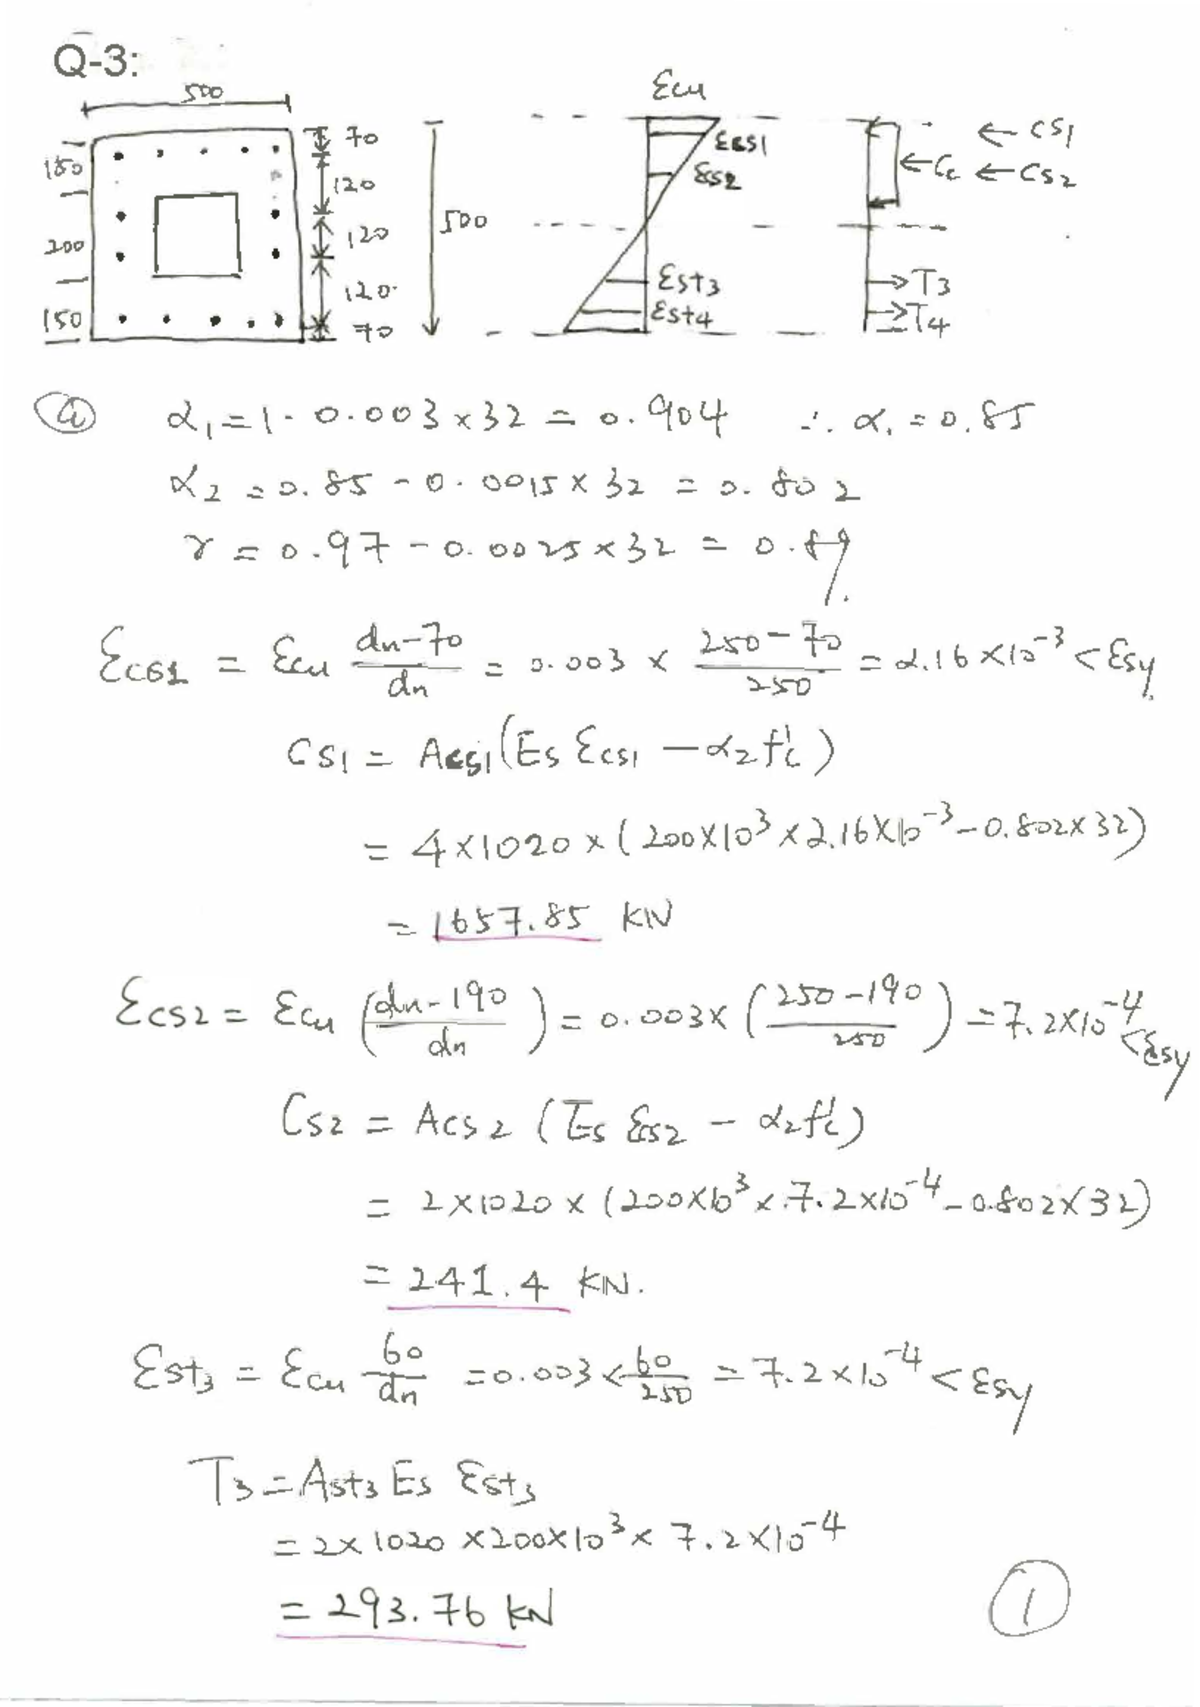 Q-3:
500
150
200
150
70
120
120
120
70
500
εcu
εcs1
εcs2
εst3
εst4
← CS1
← Cc ← CS2
→ T3
→ T4
ⓐ α₁ = 1 - 0.003 × 32 = 0.904 ∴ α₁ = 0.85
α₂ = 0.85 - 0.0015 × 32 = 0.802
γ = 0.97 - 0.0025 × 32 = 0.89
εcs1 = εcu (dn-70)/dn = 0.003 × (250-70)/250 = 2.16 × 10⁻³ < εsy
CS1 = Acs1 (Es εcs1 - α₂ f'c)
= 4 × 1020 × (200×10³ × 2.16×10⁻³ - 0.802×32)
= 1657.85 KN
εcs2 = εcu (dn-190 / dn) = 0.003 × (250-190 / 250) = 7.2×10⁻⁴ < εsy
Cs2 = Acs2 (Es εcs2 - α₂f'c)
= 2×1020 × (200×10³ × 7.2×10⁻⁴ - 0.802×32)
= 241.4 KN.
εst3 = εcu 60/dn = 0.003 × 60/250 = 7.2×10⁻⁴ < εsy
T3 = Ast3 Es εst3
= 2×1020 ×200×10³ × 7.2×10⁻⁴
= 293.76 KN
①